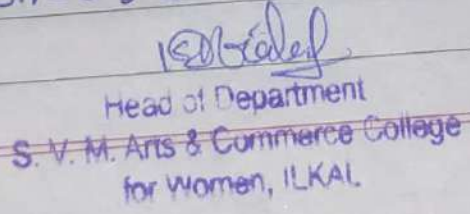 Head of Department
S. V. M. Arts & Commerce College
for Women, ILKAL